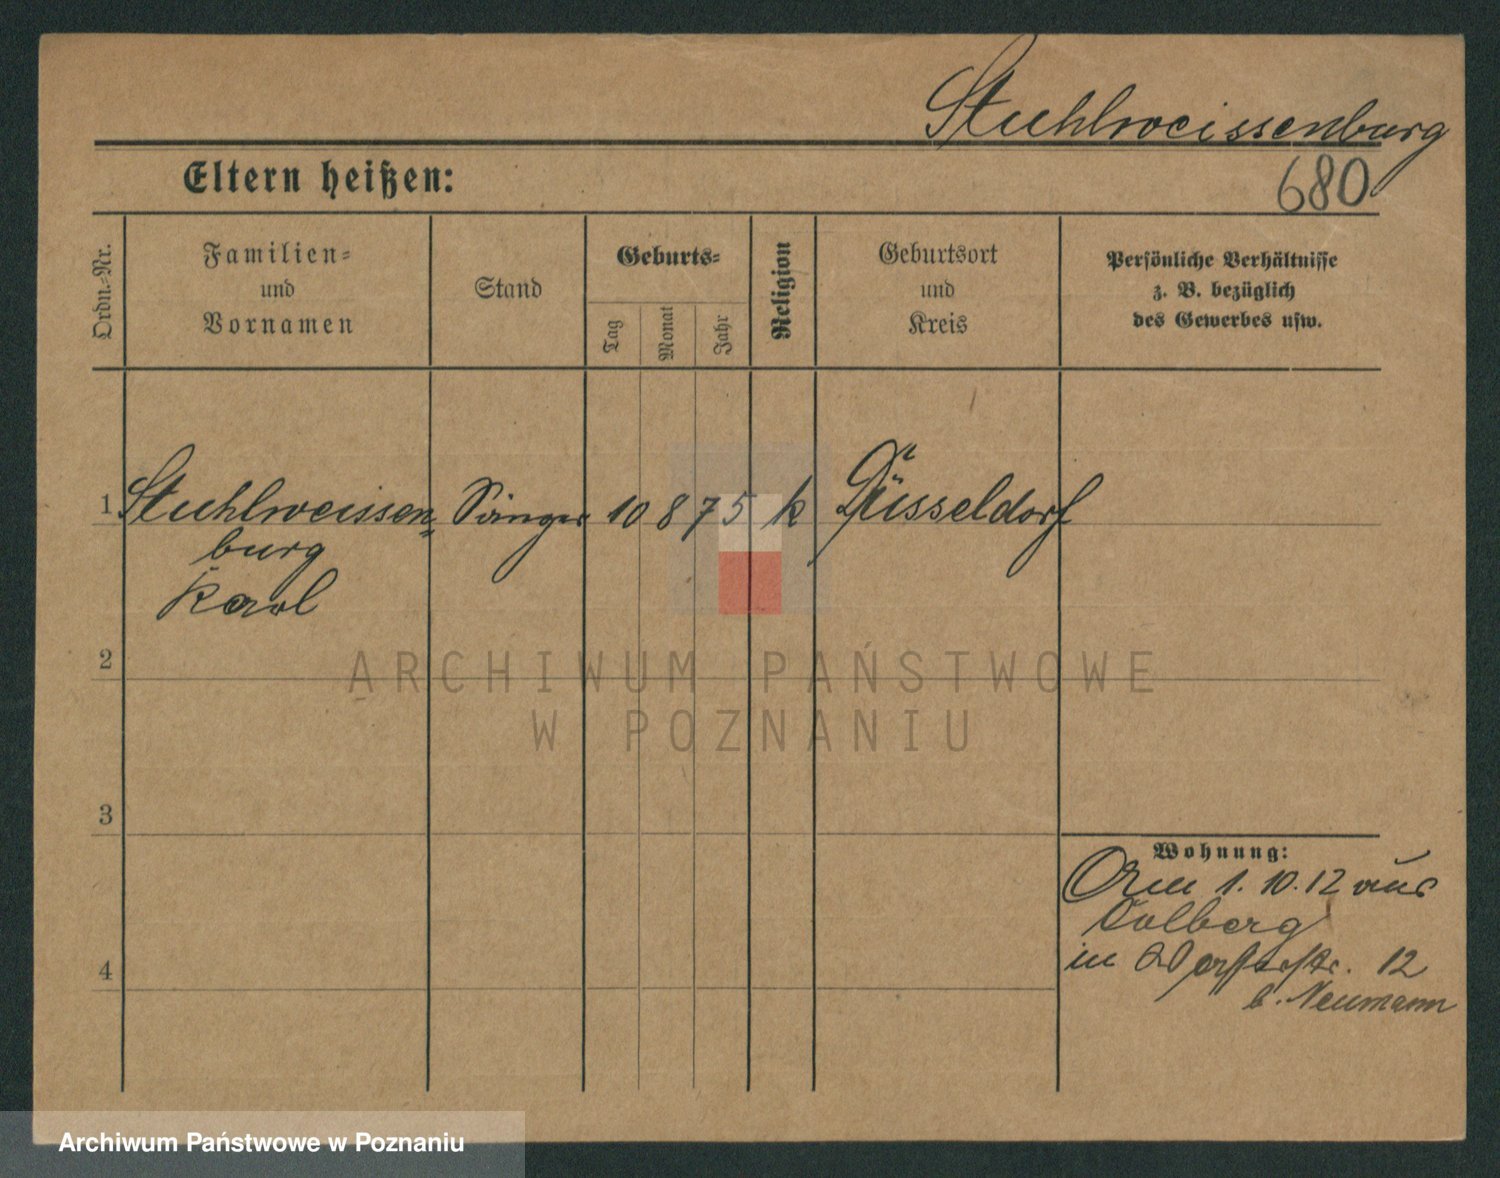 Stuhlweissenburg
680
Eltern heißen:
Ordn.-Nr.
Familien-
und
Vornamen
Stand
Geburts-
Tag
Monat
Jahr
Religion
Geburtsort
und
Kreis
Persönliche Verhältnisse
z. B. bezüglich
des Gewerbes usw.
1 Stuhlweissen- Sänger 10 8 75 k Düsseldorf
burg
Karl
2
ARCHIWUM PAŃSTWOWE
W POZNANIU
3
Wohnung:
Am 1.10.12 aus
Colberg
in 12
b. Neumann
4
Archiwum Państwowe w Poznaniu